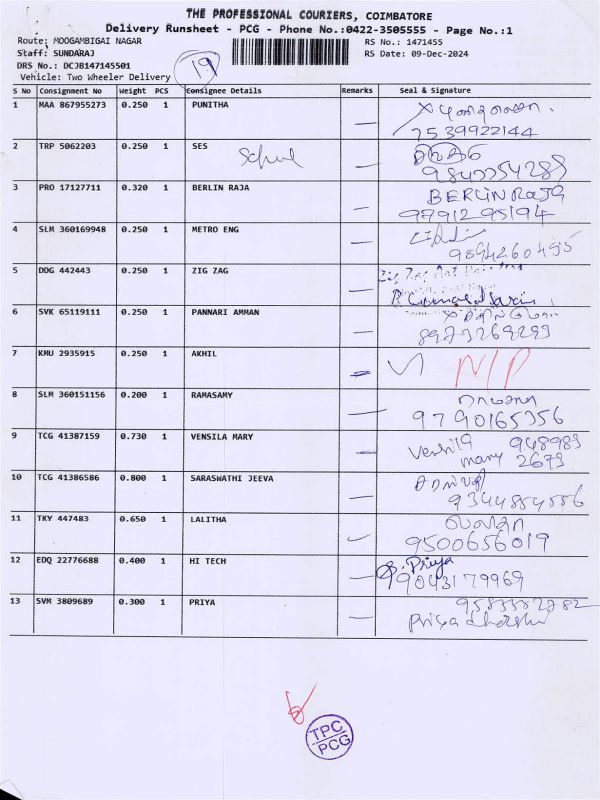 THE PROFESSIONAL COURIERS, COIMBATORE
Delivery Runsheet - PCG - Phone No.:0422-3505555 - Page No.:1
Route: MOOGAMBIGAI NAGAR
RS No.: 1471455
Staff: SUNDARAJ
RS Date: 09-Dec-2024
DRS No.: DCJB147145501
19
Vehicle: Two Wheeler Delivery
S No Consignment No Weight PCS Consignee Details Remarks Seal & Signature
1 MAA 867955273 0.250 1 PUNITHA
7539922144
2 TRP 5062203 0.250 1 SES
3 PRO 17127711 0.320 1 BERLIN RAJA BERLIN RAJA
9791295194
4 SLM 360169948 0.250 1 METRO ENG
9894260495
5 DDG 442443 0.250 1 ZIG ZAG
6 SVK 65119111 0.250 1 PANNARI AMMAN
8973269293
7 KMU 2935915 0.250 1 AKHIL N/P
8 SLM 360151156 0.200 1 RAMASAMY
9790165356
9 TCG 41387159 0.730 1 VENSILA MARY Vensila 948983
mary 2673
10 TCG 41386586 0.800 1 SARASWATHI JEEVA சரஸ்வதி
9344854556
11 TKY 447483 0.650 1 LALITHA லலிதா
9500656019
12 EDQ 22776688 0.400 1 HI TECH S. Priya
9043179969
13 SVM 3809689 0.300 1 PRIYA
Priyadharshi
TPC
PCG